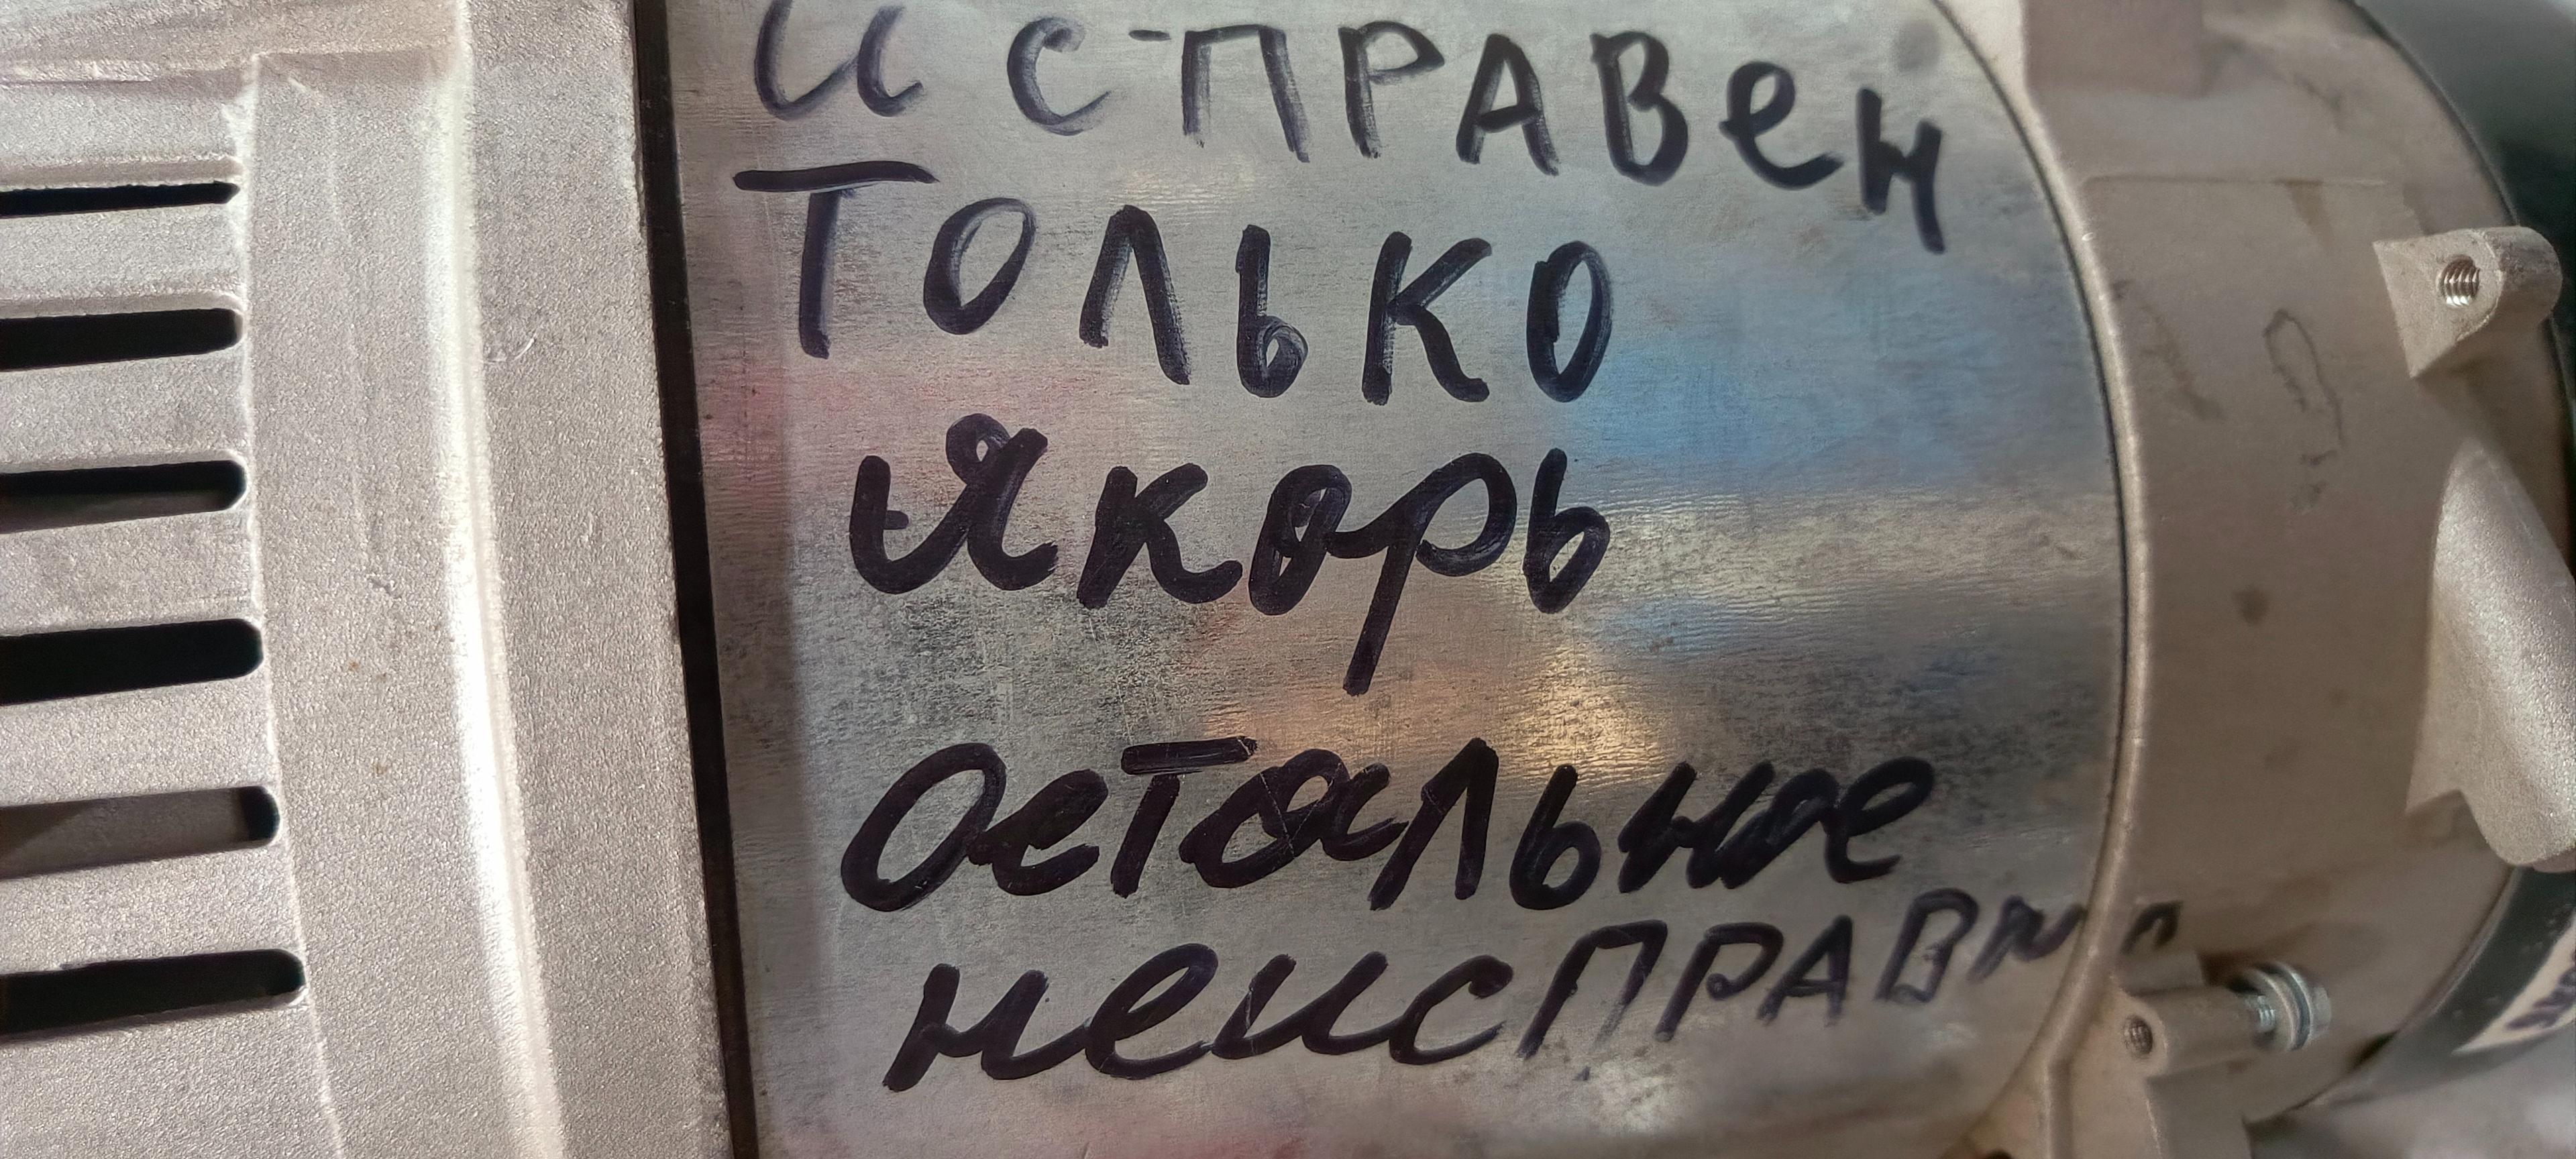 исправен
только
якорь
остальное
неисправно